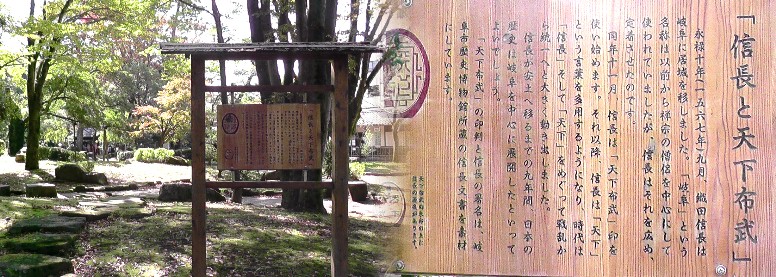 「信長と天下布武」
永禄十年(一五六七年)九月、織田信長は
岐阜に居城を移しました。「岐阜」という
名称は以前から禅宗の僧侶を中心にして
使われていましたが、信長はそれを広め、
定着させたのです。
同年十一月、信長は「天下布武」印を
使い始めます。それ以降、信長は「天下」
という言葉を多用するようになり、時代は
「信長」そして「天下」をめぐって戦乱か
ら統一へと大きく動き出しました。
信長が安土へ移るまでの九年間、日本の
歴史は岐阜を中心に展開したといって
よいでしょう。
「天下布武」の印判と信長の署名は、岐
阜市歴史博物館所蔵の信長文書を素材
にしています。